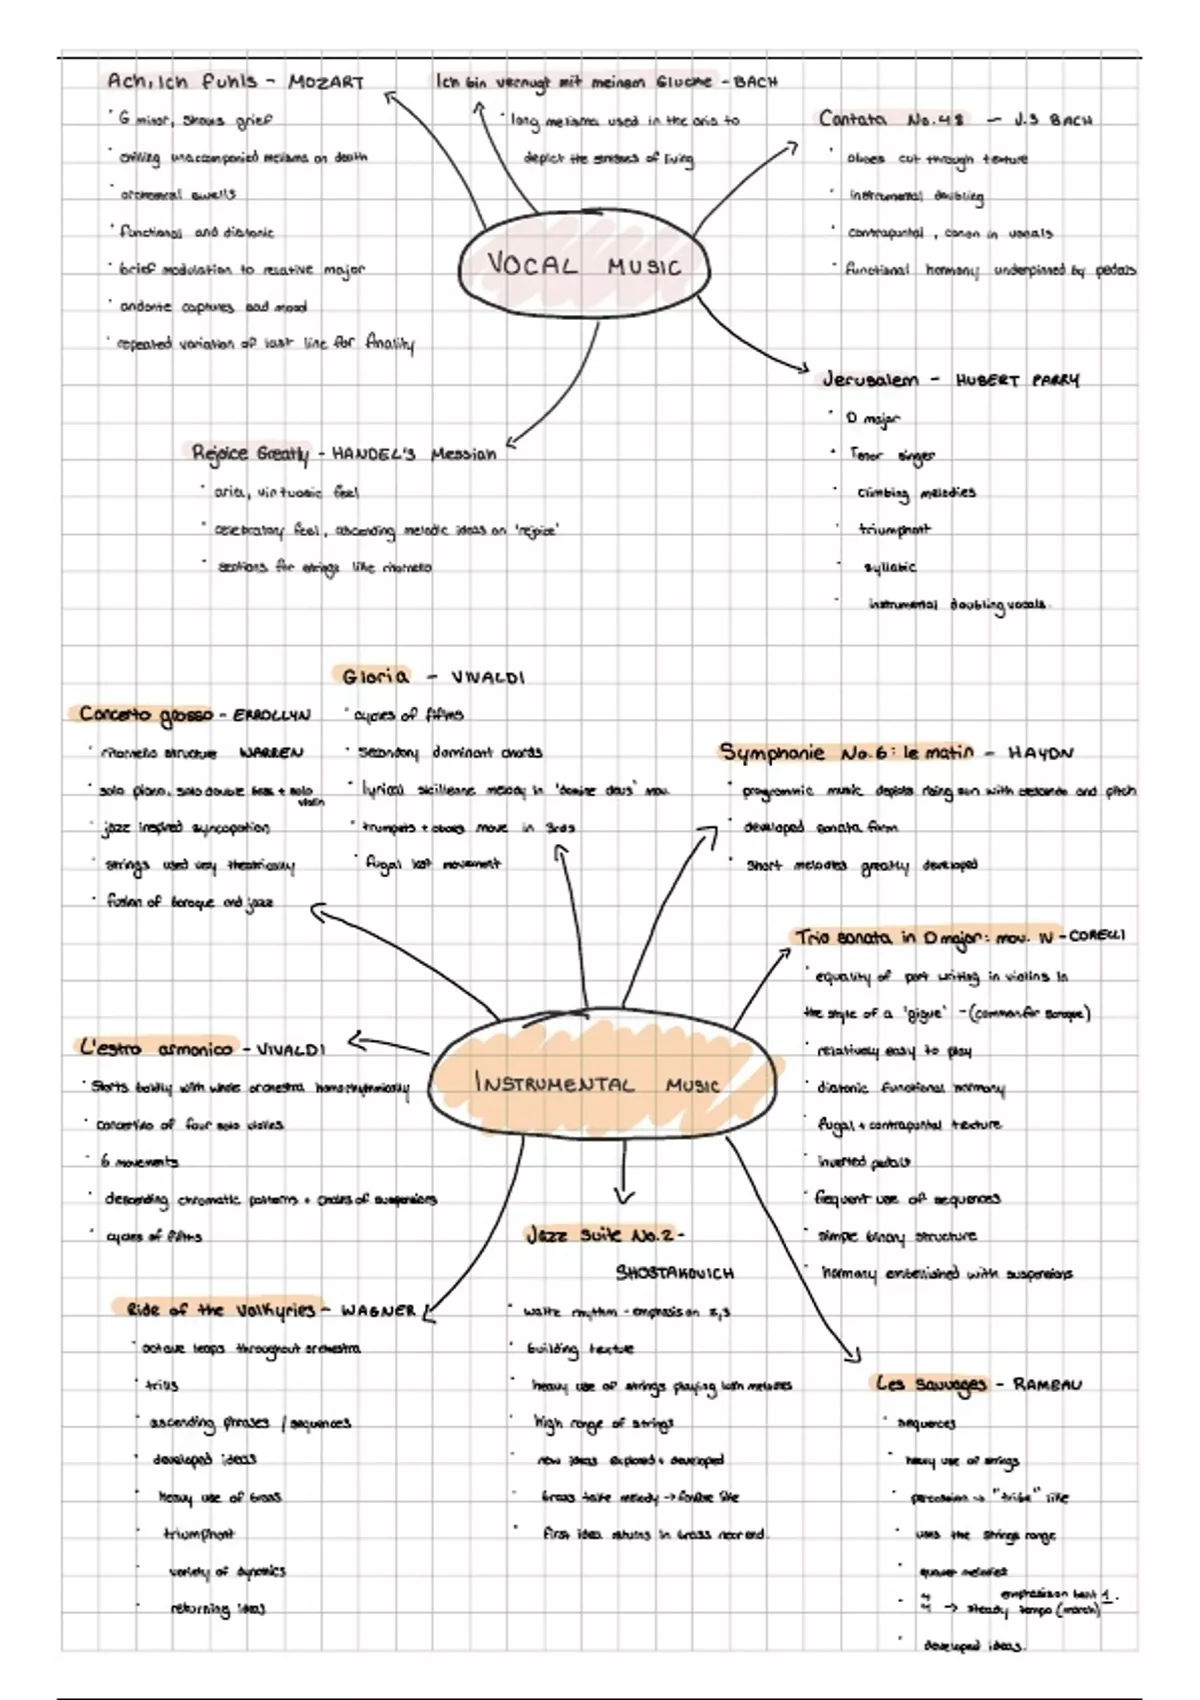 Ach, Ich fuhls - MOZART
· G minor, shows grief
· chilling unaccompanied melisma on death
· orchestral swells
· functional and diatonic
· brief modulation to relative major
· andante captures sad mood
· repeated variation of last line for finality
Ich bin vernugt mit meinem Glucke - BACH
· long melisma used in the aria to
depict the stresses of living
Cantata No.48 - J.S BACH
· oboes cut through texture
· instrumental doubling
· contrapuntal, canon in vocals
· functional harmony underpinned by pedals
VOCAL MUSIC
Jerusalem - HUBERT PARRY
· D major
· Tenor singer
· climbing melodies
· triumphant
· syllabic
· instrumental doubling vocals.
Rejoice Greatly - HANDEL'S Messiah
· aria, virtuosic feel
· celebratory feel, ascending melodic ideas on 'rejoice'
· sections for strings like ritornello
Gloria - VIVALDI
· cycles of fifths
· Secondary dominant chords
· lyrical siciliene melody in 'domine deus' mov.
· trumpets + oboes move in 3rds
· fugal last movement
Concerto grosso - ERROLLYN
WARREN
· ritornello structure
· solo piano, solo double bass + solo
violin
· jazz inspired syncopation
· strings used very theatrically
· fusion of baroque and jazz
Symphonie No.6: le matin - HAYDN
· programmic music depicts rising sun with crescendo and pitch
· developed sonata form
· short melodies greatly developed
Trio sonata in D major: mov. IV - CORELLI
· equality of part writing in violins in
the style of a 'gigue' - (common for baroque)
· relatively easy to play
· diatonic functional harmony
· fugal + contrapuntal texture
· inverted pedals
· frequent use of sequences
· simple binary structure
· harmony embellished with suspensions
L'estro armonico - VIVALDI
· Starts boldly with whole orchestra homorhythmically
· concertino of four solo violins
· 6 movements
· descending chromatic patterns + chains of suspensions
· cycles of fifths
INSTRUMENTAL MUSIC
Ride of the Valkyries - WAGNER
· octave leaps throughout orchestra
· trills
· ascending phrases / sequences
· developed ideas
· heavy use of brass
· triumphant
· variety of dynamics
· returning ideas
Jazz Suite No.2 -
SHOSTAKOVICH
· waltz rhythm - emphasis on 2,3
· building texture
· heavy use of strings playing both melodies
· high range of strings
· new ideas explored + developed
· brass take melody → fanfare like
· first idea returns in brass near end.
Les Sauvages - RAMEAU
· sequences
· heavy use of strings
· percussion → "tribe" like
· uses the strings range
· quaver melodies
· 4/4 → steady tempo (march) emphasis on beat 1.
· developed ideas.